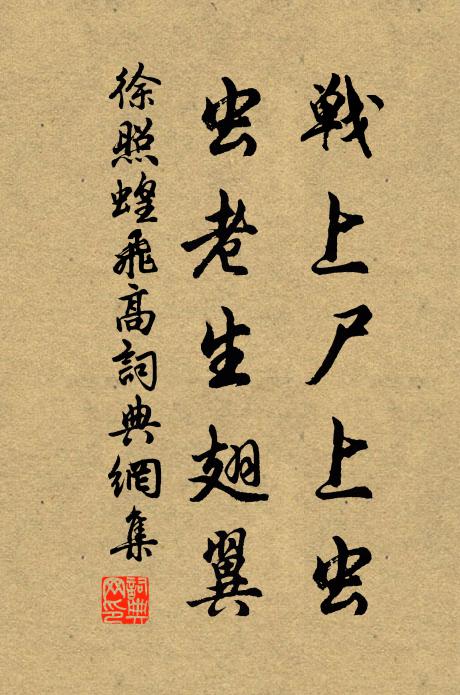 戰上尸上虫
虫老生翅翼
徐照蝗飛高詞典網集
詞典网印